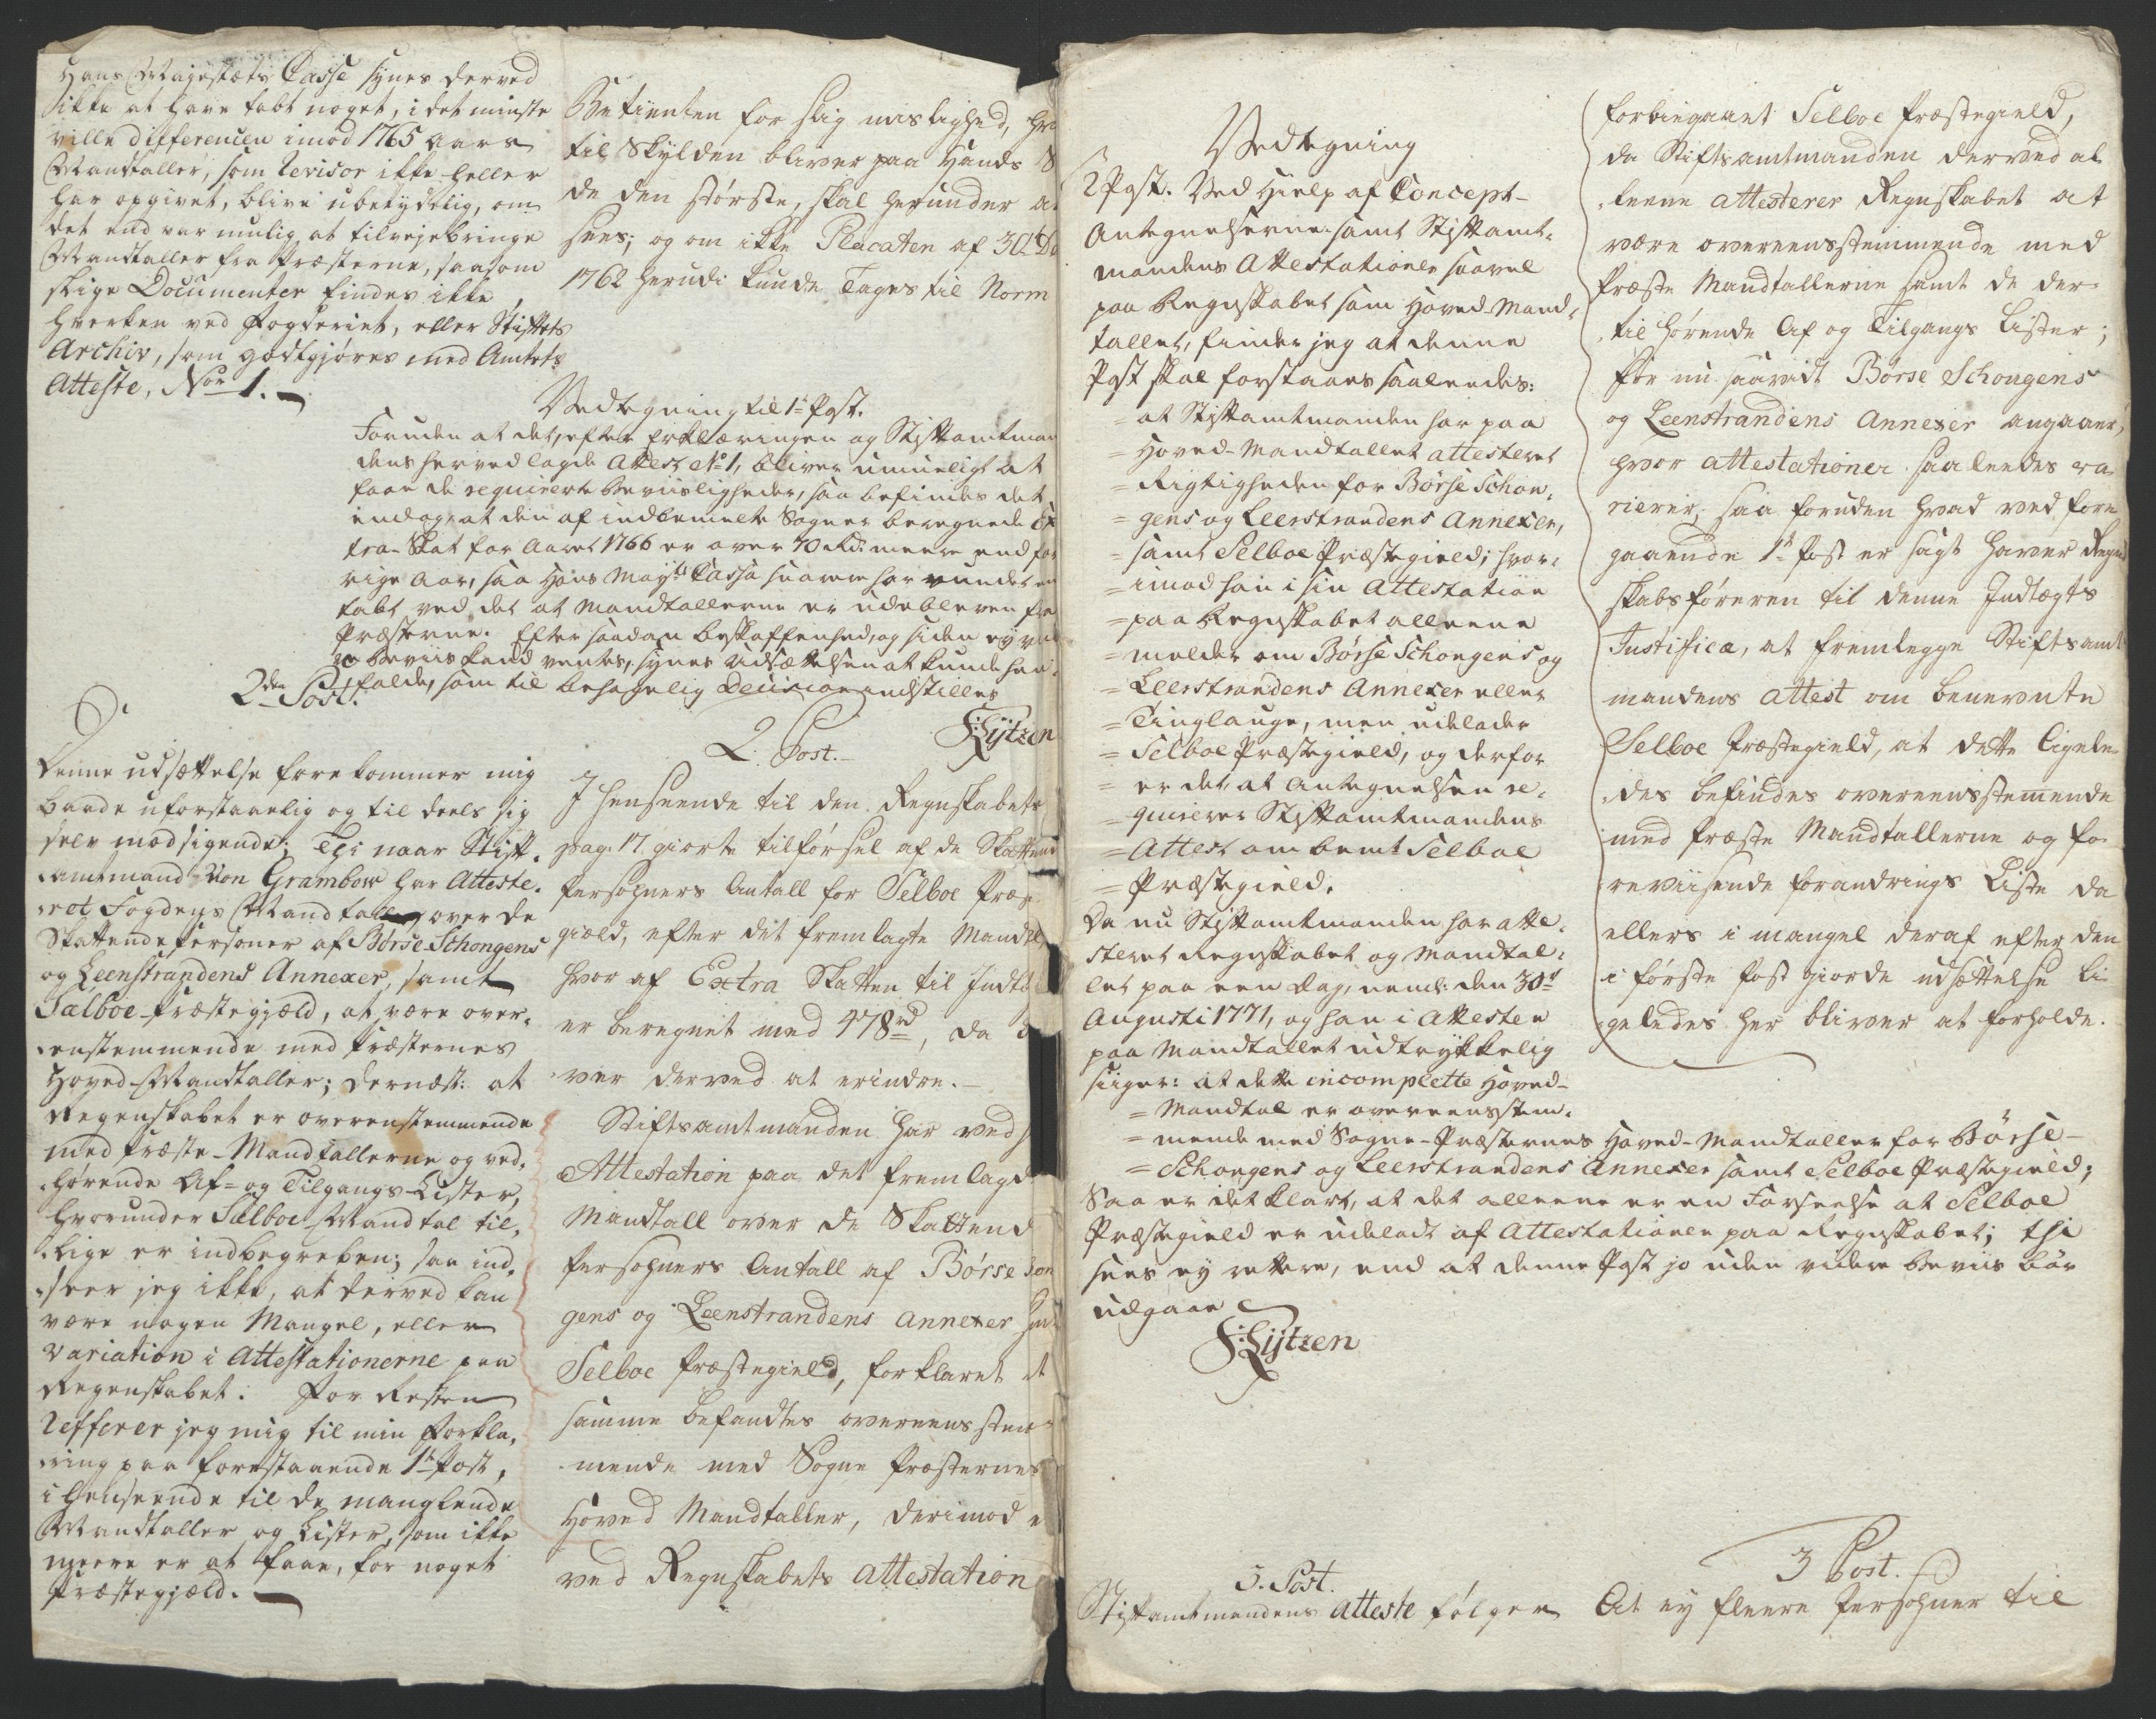 Hans Majestæts Casse synes derved
ikke at have tabt noget, i det minste
ville differencen imod 1765 aars
Mandtaller, som Revisor ikke heller
har opgivet, blive ubetydelig, om
det end var mulig at tilvejebringe
Mandtaller fra Præsterne, saasom
slige Documenter findes ikke,
hverken ved Fogderiet, eller Stiftets
Archiv, som godtgjøres med Amtets
Atteste, No 1.
Betienten for slig mislighed,
til Skylden bliver paa Hands
de den største, skal herunder
sees; og om ikke Placaten af 30t
1762 herudi kunde Tages til Norm
Vedtegning til 1te Post.
Foruden at det, efter Erklæringen og Stiftamtman
dens herved lagde Attest No 1, bliver umueligt at
faae de requirerte Beviisligheder, saa befindes det
endog, at den af indbemelte Sogner beregnede Ex
tra-Skat for Aaret 1766 er over 70 Rd: meere end for
rige Aar, saa Hans Mayts Cassa snarere har vundet en
tabt ved det at Mandtallerne er udebleven fra
Præsterne. Efter saadan beskaffenhed, og siden ey
Beviis kand ventes, synes Udsættelsen at kunde hen-
falde, som til behagelig Decision indstilles
F. Lijtzen
2den Post.
Denne udsættelse forekommer mig
baade uforstaaelig og til deels sig
selv modsigende; Thi naar Stift-
amtmand von Grambow har Atteste-
ret Fogdens Mandtall over de
Skattende Personer af Børse Schongens
og Leenstrandens Annexer, samt
Sælboe Præstegjæld, at være over-
eenstemmende med Præsternes
Hoved-Mandtaller; dernæst: at
Regenskabet er overenstemmende
med Præste-Mandtallerne og ved-
hørende Af- og Tilgangs-Lister,
hvorunder Sælboe Mandtal til-
lige er indbegreben; saa ind-
seer jeg ikke, at derved kan
være nogen Mangel, eller
variation i Attestationerne paa
Regenskabet. For Resten
refferer jeg mig til min Forkla-
ring paa forestaaende 1te Post,
i Henseende til de manglende
Mandtaller og Lister, som ikke
meere er at faae, for noget
Præstegjæld.
2. Post.
I Henseende til den Regnskabets
pag. 17 giorte tilførsel af de Skattend
Persohners Antall for Selboe Præs
gield, efter dit fremlagte Mandtl
hvor af Extra Skatten til Indtæ
er beregnet med 478 rd, da
ver derved at erindre.
Stiftsamtmanden har ved
Attestation paa det fremlagde
Mandtall over de Skattend
Persohners Antall af Børse Schon
gens og Leenstrandens Annexer
Selboe Præstegield, forklaret at
samme befandtes overeensstem-
mende med Sogne Præsternes
Hoved Mandtaller, derimod e
ved Regnskabets Attestation
Vedtegning
2 Post. Ved Hielp af Concept-
Antegnelserne samt Stiftamt-
mandens Attestationer saavel
paa Regnskabet som Hoved-Mand-
tallet, finder jeg at denne
Post skal forstaaes saaledes:
= at Stiftamtmanden har paa
= Hoved-Mandtallet attesteret
= Rigtigheden for Børse Schon-
= gens og Leerstrandens Annexer,
= samt Selboe Præstegield; hvor-
= imod han i sin Attestation
= paa Regnskabet alleene
= melder om Børse Schongens og
= Leerstrandens Annexer eller
= Tinglauge, men udelader
= Selboe Præstegield, og derfor
= er det, at Antegnelsen re-
= quirerer Stiftamtmandens
= Attest om bemt Selboe
= Præstegield.
Da nu Stiftamtmanden har atte-
steret Regnskabet og Mandtal-
let paa een Dag, neml: den 30te
Augusti 1771, og han i Attesten
paa Mandtallet udtrykkelig
siiger: at dette incomplette Hoved-
= Mandtal er overeensstem-
= mende med Sogne-Præsternes Hoved-Mandtaller for Børse-
= Schongens og Leerstrandens Annexer samt Selboe Præstegield;
Saa er det klart, at det alleene er en Forseelse at Selboe
Præstegield er udeladt af Attestationen paa Regnskabet; thi
sees ey rettere, end at denne Post jo uden videre Beviis bør
udgaae
F. Lijtzen
forbiegaaet Selboe Præstegield,
da Stiftsamtmanden derved al
leene attesterer Regnskabet at
være overeensstemmende med
Præste Mandtallerne samt de der-
til hørende Af og Tilgangs Lister;
for nu saavidt Børse Schongens
og Leenstrandens Annexer angaaer,
hvor attestationer saaledes va-
rierer, saa foruden hvad ved fore
gaaende 1te Post er sagt haver Regn
skabsføreren til denne Indtægts
Justifica, at fremlegge Stiftsamt
mandens attest om benevnte
Selboe Præstegield, at dette ligele
des befindes overeensstemende
med Præste Mandtallerne og fo-
reviisende forandrings Liste da
ellers i mangel deraf efter den
i første Post giorde udsættelse li-
geledes her bliver at forholde.
3. Post.
Stiftamtmandens Atteste følger
3 Post.
At ey fleere Persohner til